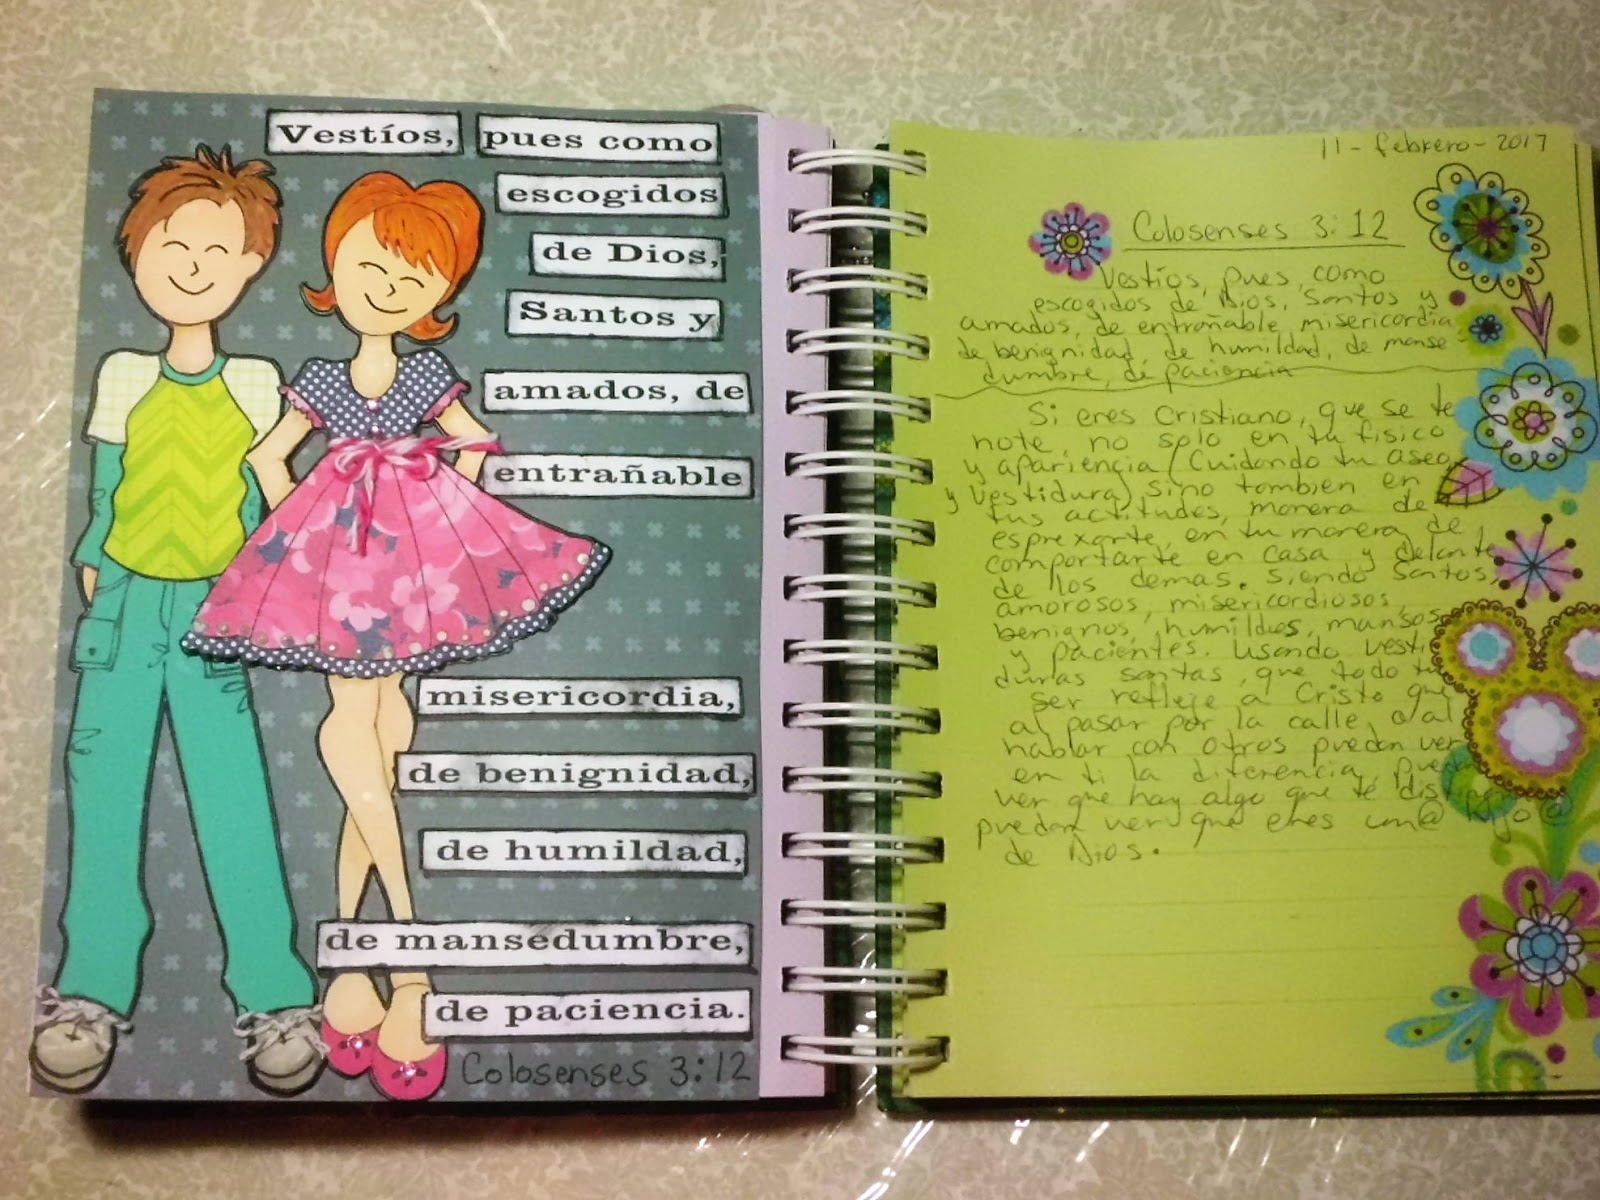 Vestíos, pues como
escogidos
de Dios,
Santos y
amados, de
entrañable
misericordia,
de benignidad,
de humildad,
de mansedumbre,
de paciencia.
Colosenses 3:12
11-febrero-2017
Colosenses 3:12
Vestíos, pues, como
escogidos de Dios, Santos y
amados, de entrañable misericordia,
de benignidad, de humildad, de manse-
dumbre, de paciencia
Si eres Cristiano, que se te
note, no solo en tu fisico
y apariencia (Cuidando tu aseo
y vestidura) sino tambien en
tus actitudes, manera de
esprexarte, en tu manera de
comportarte en casa y delante
de los demas. Siendo Santos,
amorosos, misericordiosos,
benignos, humildes, mansos
y pacientes. Usando vesti
duras santas, que todo tu
ser refleje a Cristo que
al pasar por la calle, o al
hablar con otros puedan ver
en ti la diferencia, puedan
ver que hay algo que te
puedan ver que eres un@ hij@
de Dios.